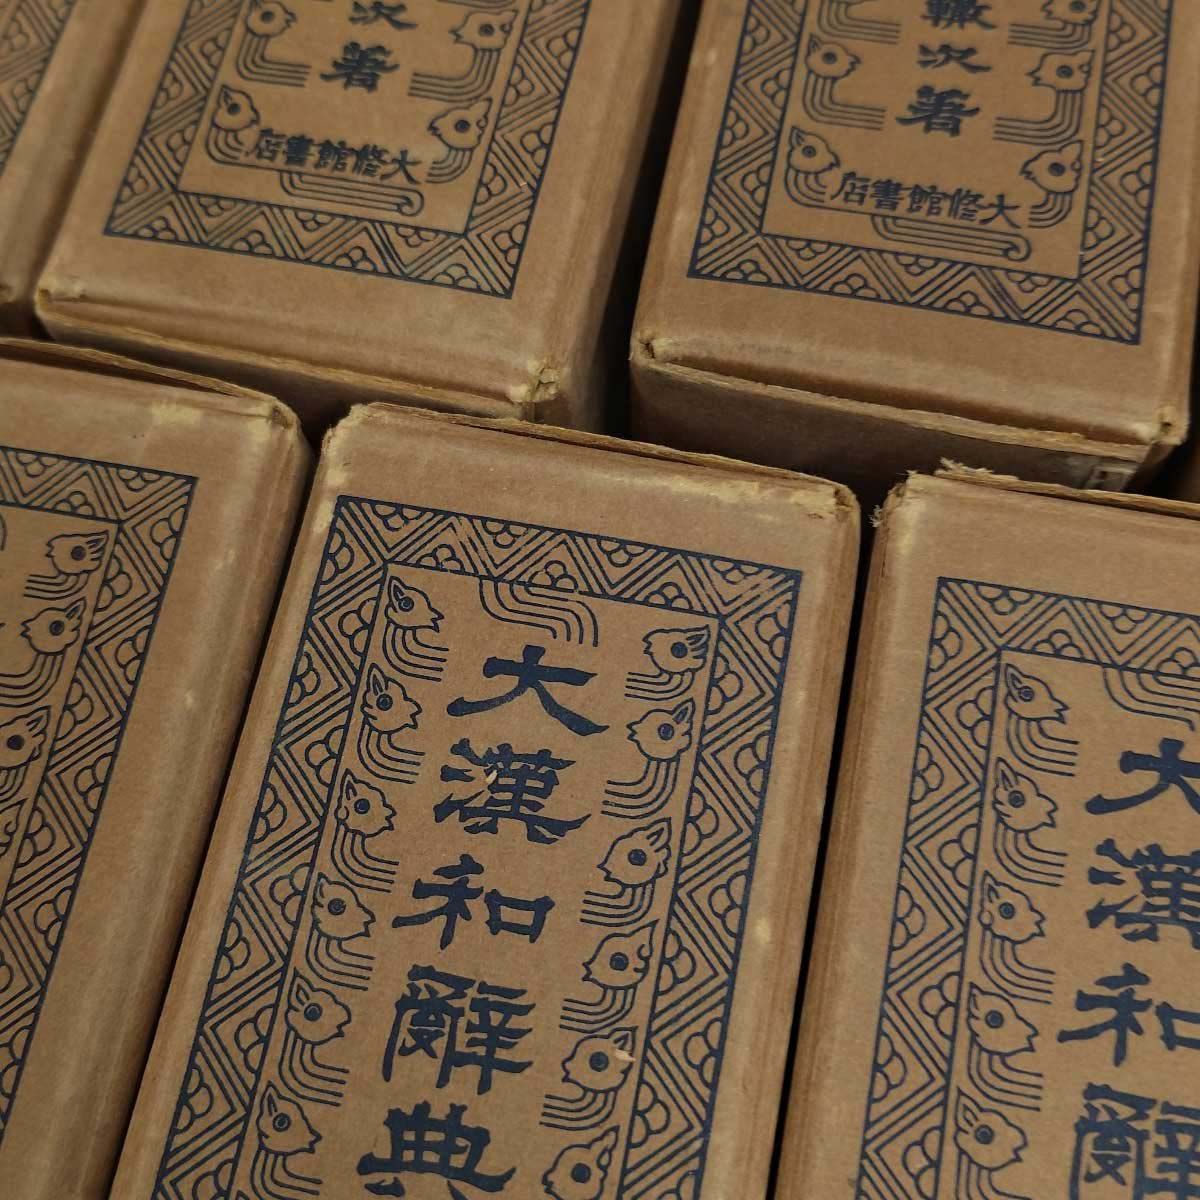 次著
店書館修大
轍次著
店書館修大
大漢和辭典
大漢和辭